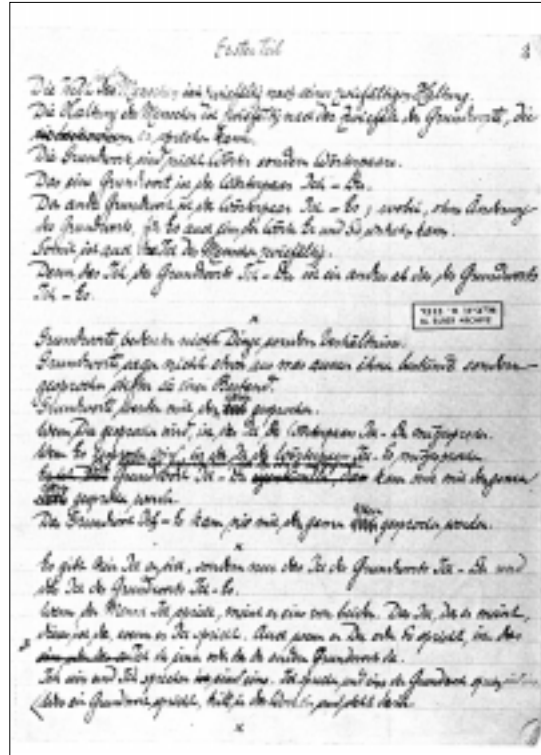 Erster Teil
Die Welt des Menschen ist zwiefältig nach seiner zwiefältigen Haltung.
Die Haltung des Menschen ist zwiefältig nach der Zwiefalt der Grundworte, die
er sprechen kann.
Die Grundworte sind nicht Wörter sondern Wörterpaare.
Das eine Grundwort ist das Wörterpaar Ich – Du.
Das andre Grundwort ist das Wörterpaar Ich – Es; wobei, ohne Änderung
des Grundworts, für Es auch eins der Wörter Er und Sie
Somit ist auch das Ich des Menschen zwiefältig.
Denn das Ich des Grundworts Ich – Du ist ein andres als das des Grundworts
Ich – Es.
M. BUBER ARCHIVE
Grundworte bedeuten nicht Dinge, sondern Verhältnisse.
Grundworte sagen nicht etwas aus was ausser ihnen bestünde sondern
gesprochen stiften sie einen Bestand.
Grundworte werden mit dem gesprochen.
Wenn Du gesprochen wird, ist das Ich des Wörterpaars Ich – Du mitgesprochen.
Wenn Es gesprochen wird, ist das Ich des Wörterpaars Ich – Es mitgesprochen.
Das Grundwort Ich – Du kann nur mit dem ganzen
gesprochen werden.
Das Grundwort Ich – Es kann nie mit dem ganzen gesprochen werden.
Es gibt kein Ich an sich, sondern nur das Ich des Grundworts Ich – Du und
das Ich des Grundworts Ich – Es.
Wenn der Mensch Ich spricht, meint er eins von beiden. Das Ich, das er meint,
dieses ist da, wenn er Ich spricht. Auch wenn er Du oder Es spricht, ist das
Ich des einen oder das des andern Grundworts da.
Ich sein und Ich sprechen sind eins. Ich sprechen und eins der Grundworte sprechen
Wer ein Grundwort spricht, tritt in das Wort ein und steht darin.